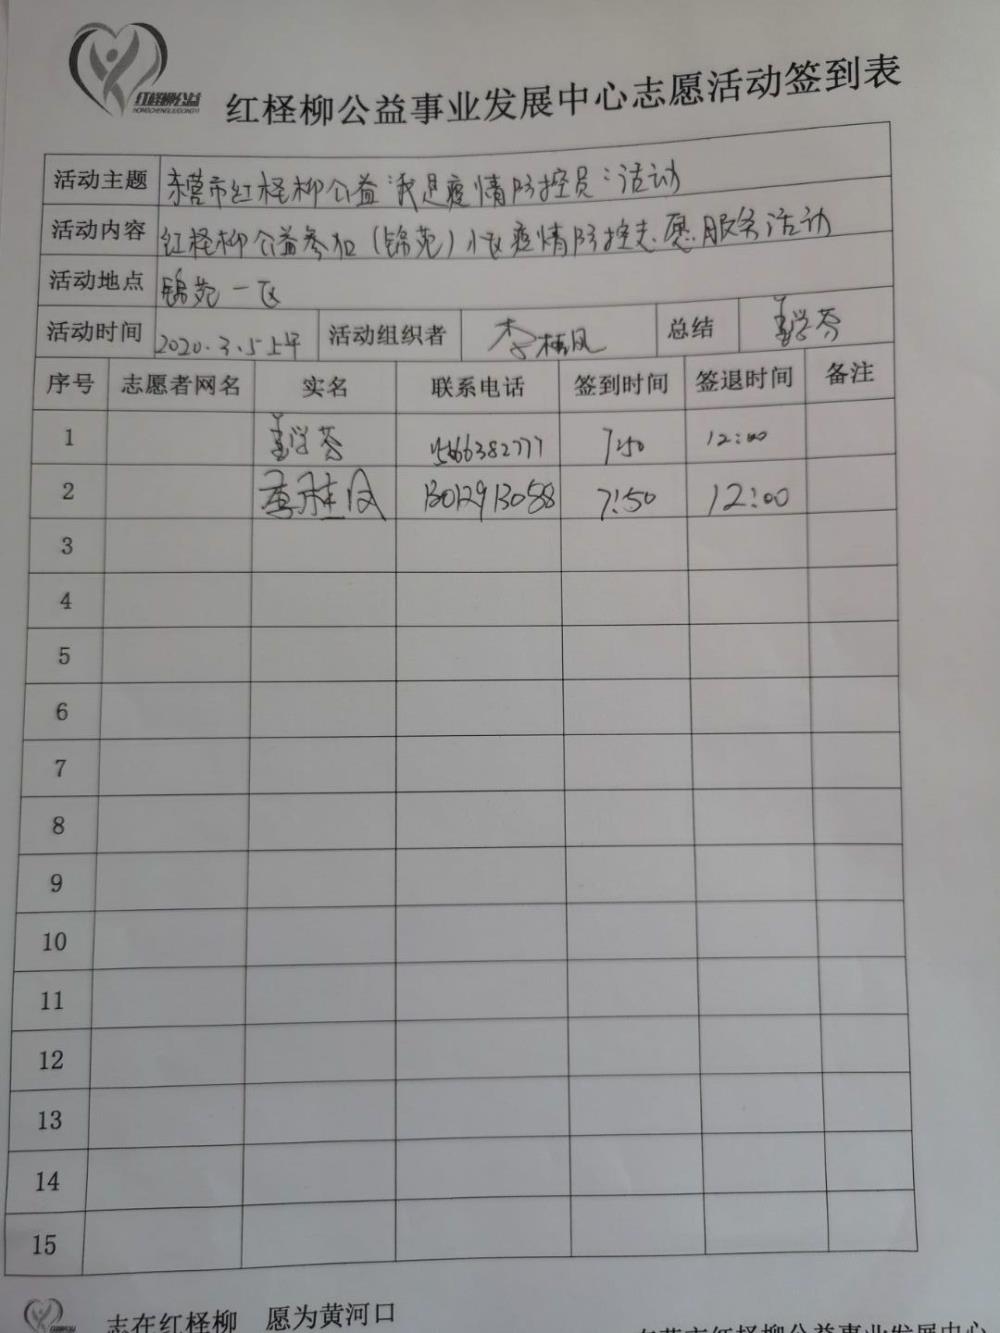 红柽柳公益
HONGCHENGLIUGONGYI
红柽柳公益事业发展中心志愿活动签到表
活动主题 东营市红柽柳公益"我是疫情防控员"活动
活动内容 红柽柳公益参加(锦苑)小区疫情防控志愿服务活动
活动地点 锦苑一区
活动时间 2020.3.5上午 活动组织者 李桂凤 总结 学芬
序号 志愿者网名 实名 联系电话 签到时间 签退时间 备注
1 学芬 7:50 12:00
2 13012913058 7:50 12:00
3
4
5
6
7
8
9
10
11
12
13
14
15
志在红柽柳 愿为黄河口
东营市红柽柳公益事业发展中心